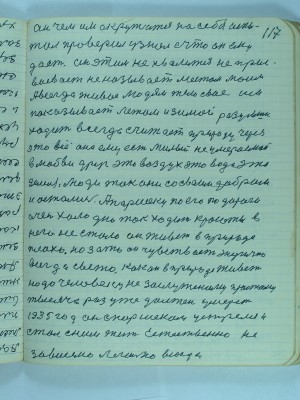 117
он чем им окружится на себя испы-
тал проверил узнал что он ему
дает. Он этим не хвалится не при-
зывает не называет местом моим
А всегда живое людям тело свое
показывает летом и зимой разумши
ходит всегда считает природу через
это всё. она ему есть милый не умираемый
в любви друг это воздух это вода это
земля. Люди так они со своим добром
и остались. А Паршеку по его по дороге
очень холодно так ходить красоты в
него не стало он живет в природе
плохо. но зато он чувствует энергично
всегда свежо, как он в природе живет
надо человеку не заслуженому
тысячу раз уже должен умереть
1935 год он Паршек им
стал с ним жить Естественно не
зависимо легко всегда